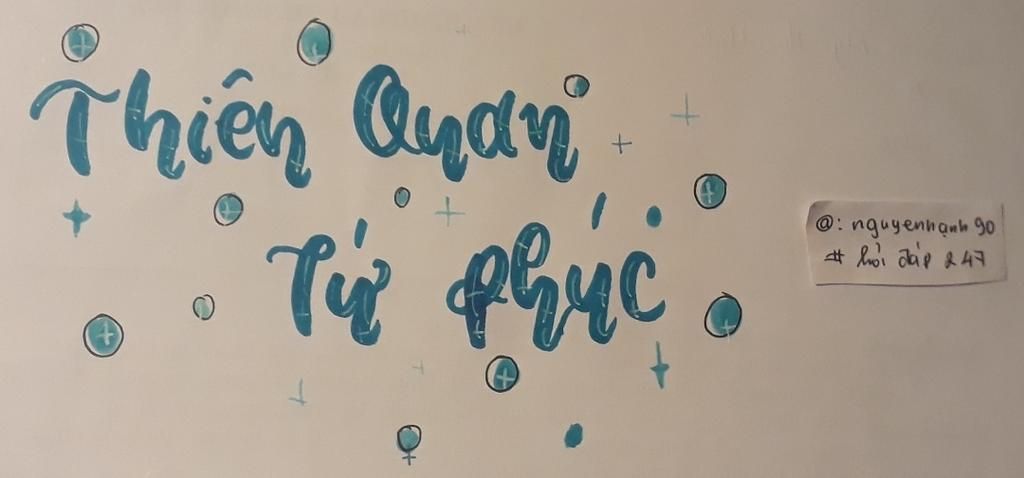 Thiên Quan
Tứ phúc
@: nguyenhạnh90
# hỏi đáp 247